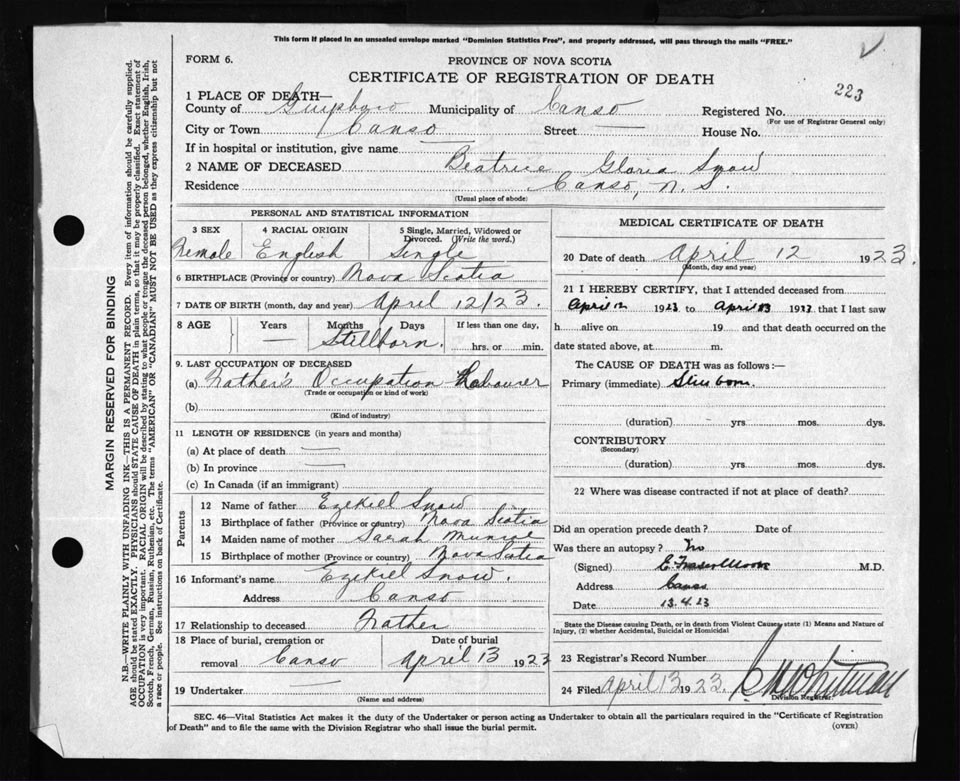 This form if placed in an unsealed envelope marked "Dominion Statistics Free", and properly addressed, will pass through the mails "FREE."
FORM 6.
PROVINCE OF NOVA SCOTIA
CERTIFICATE OF REGISTRATION OF DEATH
223
1 PLACE OF DEATH—
County of Municipality of Canso Registered No.
(For use of Registrar General only)
City or Town Canso Street — House No.
If in hospital or institution, give name —
2 NAME OF DECEASED Beatrice Gloria Snow
Residence Canso, N. S.
(Usual place of abode)
PERSONAL AND STATISTICAL INFORMATION
3 SEX 4 RACIAL ORIGIN 5 Single, Married, Widowed or Divorced. (Write the word.)
Female English Single
6 BIRTHPLACE (Province or country) Nova Scotia
7 DATE OF BIRTH (month, day and year) April 12/23.
8 AGE Years Months Days If less than one day,
— Stillborn. hrs. or min.
9. LAST OCCUPATION OF DECEASED
(a) Father's Occupation Labourer
(Trade or occupation or kind of work)
(b)
(Kind of industry)
11 LENGTH OF RESIDENCE (in years and months)
(a) At place of death —
(b) In province —
(c) In Canada (if an immigrant)
Parents
12 Name of father Ezekiel Snow
13 Birthplace of father (Province or country) Nova Scotia
14 Maiden name of mother Sarah Munroe
15 Birthplace of mother (Province or country) Nova Scotia
16 Informant's name Ezekiel Snow.
Address Canso
17 Relationship to deceased Father
18 Place of burial, cremation or Date of burial
removal Canso April 13 1923
19 Undertaker —
(Name and address)
MEDICAL CERTIFICATE OF DEATH
20 Date of death April 12 1923.
(Month, day and year)
21 I HEREBY CERTIFY, that I attended deceased from
April 12 1923 to April 13 1923 that I last saw
h alive on 19 and that death occurred on the
date stated above, at m.
The CAUSE OF DEATH was as follows:—
Primary (immediate) Still born.
(duration) yrs mos. dys.
CONTRIBUTORY
(Secondary)
(duration) yrs. mos. dys.
22 Where was disease contracted if not at place of death?
Did an operation precede death? Date of
Was there an autopsy? No
(Signed) M.D.
Address Canso
Date 13.4.23
State the Disease causing Death, or in death from Violent Causes, state (1) Means and Nature of
Injury, (2) whether Accidental, Suicidal or Homicidal
23 Registrar's Record Number
24 Filed April 13 1923. Whitman
Division Registrar.
SEC. 46—Vital Statistics Act makes it the duty of the Undertaker or person acting as Undertaker to obtain all the particulars required in the "Certificate of Registration
of Death" and to file the same with the Division Registrar who shall issue the burial permit.
(OVER)
MARGIN RESERVED FOR BINDING
N.B.—WRITE PLAINLY WITH UNFADING INK—THIS IS A PERMANENT RECORD. Every item of information should be carefully supplied.
AGE should be stated EXACTLY. PHYSICIANS should STATE CAUSE OF DEATH in plain terms, so that it may be properly classified. Exact statement of
OCCUPATION is very important. RACIAL ORIGIN will be described by stating to what people or tongue the deceased person belonged, whether English, Irish,
Scotch, French, German, Russian, Ruthenian, etc. The terms "AMERICAN" OR "CANADIAN" MUST NOT BE USED as they express citizenship but not
a race or people. See instructions on back of Certificate.